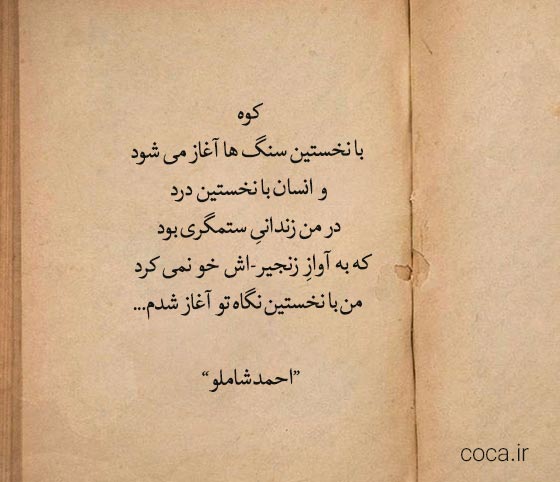 کوه
با نخستین سنگ ها آغاز می شود
و انسان با نخستین درد
در من زندانیِ ستمگری بود
که به آوازِ زنجیر-اش خو نمی کرد
من با نخستین نگاه تو آغاز شدم...
”احمد شاملو“
coca.ir